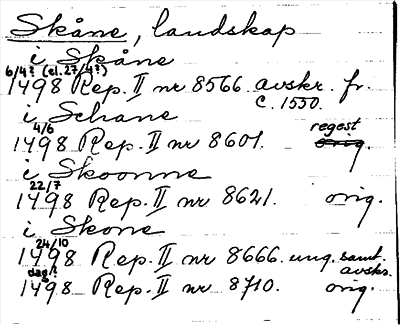 Skåne, landskap
i Skåne
6/4? (el. 27/4?)
1498 Rep. II nr 8566. avskr. fr.
c. 1550.
i Schane
4/6 regest
1498 Rep. II nr 8601. orig.
i Skoonne
22/7
1498 Rep. II nr 8621. orig.
i Skone
24/10
1498 Rep. II nr 8666. ung. samt.
dag? avskr.
1498 Rep. II nr 8710. orig.